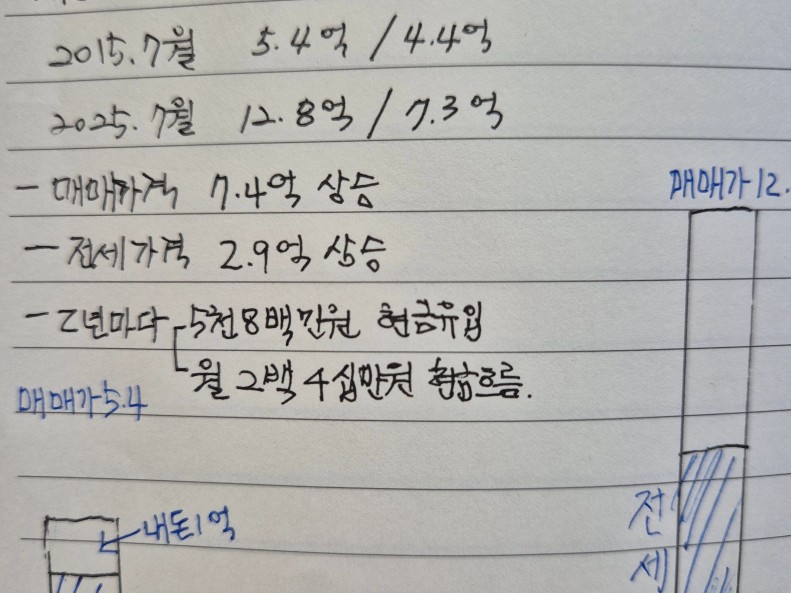 2015.7월 5.4억 / 4.4억
2025.7월 12.8억 / 7.3억
- 매매가격 7.4억 상승
매매가 12.
- 전세가격 2.9억 상승
- 2년마다 5천8백만원 현금유입
월 2백4십만원 현금흐름.
매매가 5.4
내돈 1억
전
세